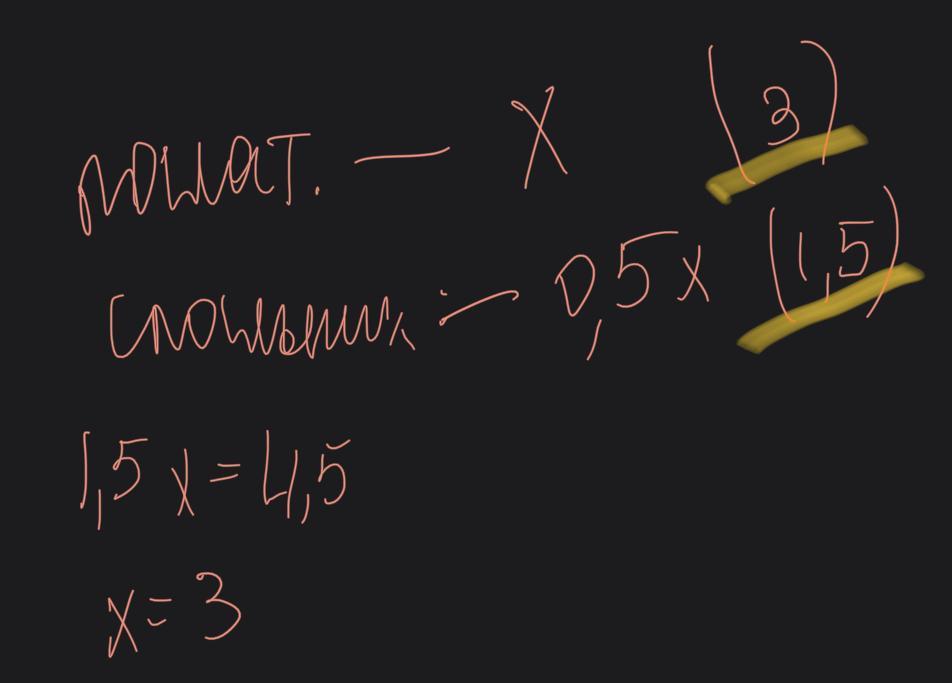 — x (3)
— 0,5x (1,5)
1,5x = 4,5
x = 3